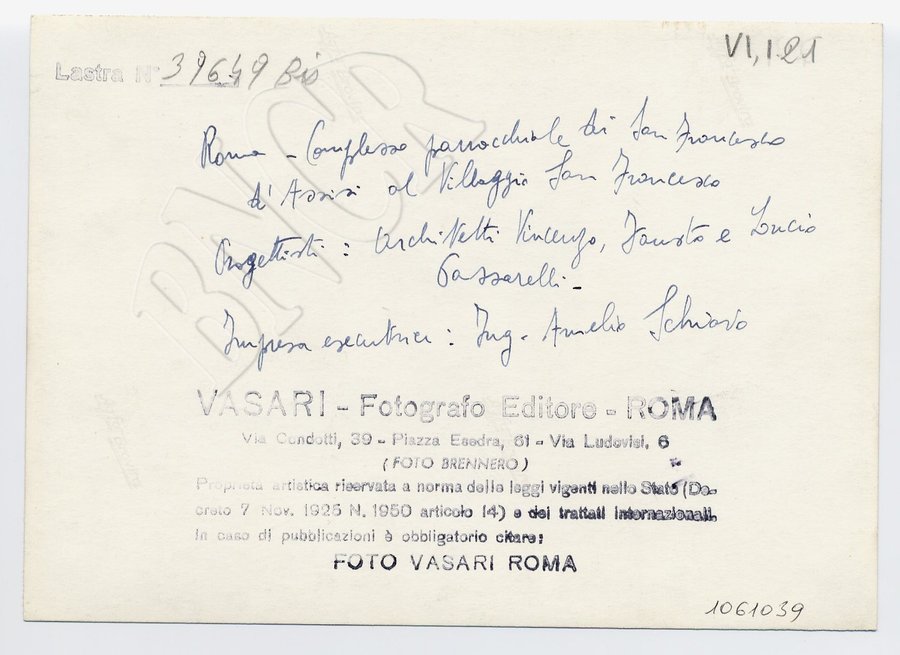 VI, 121
Lastra N° 39649 Bis
Roma - Complesso parrocchiale di San Francesco
d'Assisi al Villaggio San Francesco
Progettisti: Architetti Vincenzo, Fausto e Lucio
Passarelli -
Impresa esecutrice: Ing. Amelio Schiavo
VASARI - Fotografo Editore - ROMA
Via Condotti, 39 - Piazza Esedra, 61 - Via Ludovisi, 6
(FOTO BRENNERO)
Proprietà artistica riservata a norma delle leggi vigenti nello Stato (De-
creto 7 Nov. 1925 N. 1950 articolo 14) e dei trattati internazionali.
In caso di pubblicazioni è obbligatorio citare:
FOTO VASARI ROMA
1061039
BNCR